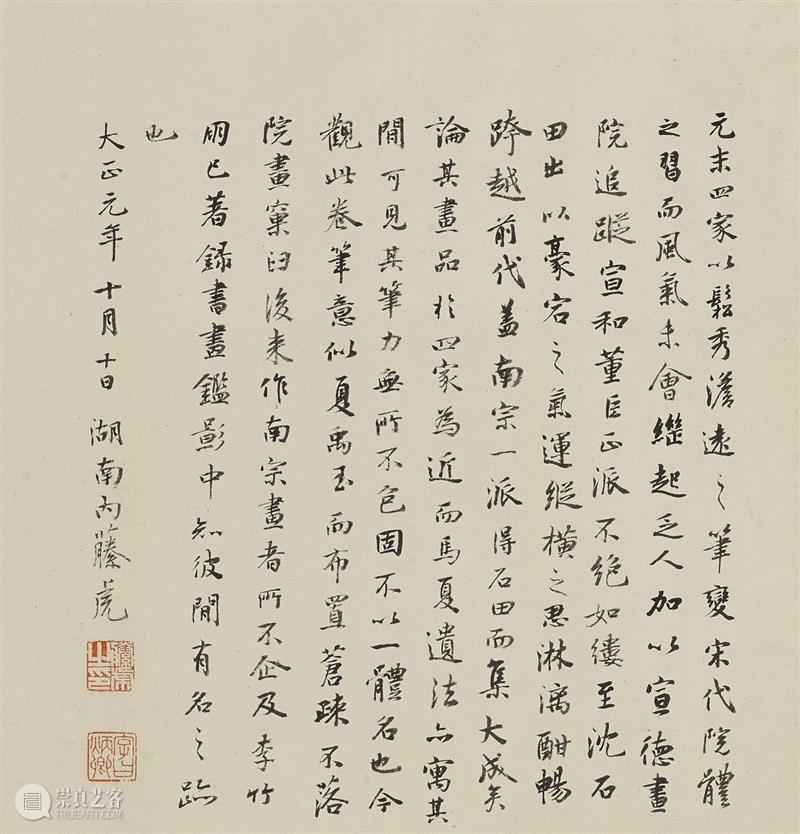 元末四家以鬆秀澹遠之筆變宋代院體
之習而風氣未會繼起乏人加以宣德畫
院追蹤宣和董巨正派不絕如縷至沈石
田出以豪宕之氣運縱橫之思淋漓酣暢
跨越前代蓋南宗一派得石田而集大成矣
論其畫品於四家為近而馬夏遺法亦寓其
間可見其筆力無所不包固不以一體名也今
觀此卷筆意似夏禹玉而布置蒼疎不落
院畫窠臼後來作南宗畫者所不企及李竹
朋已著錄書畫鑑影中知彼間有名之跡
也
大正元年十月十日湖南內藤虎
字曰炳卿
崇真艺客